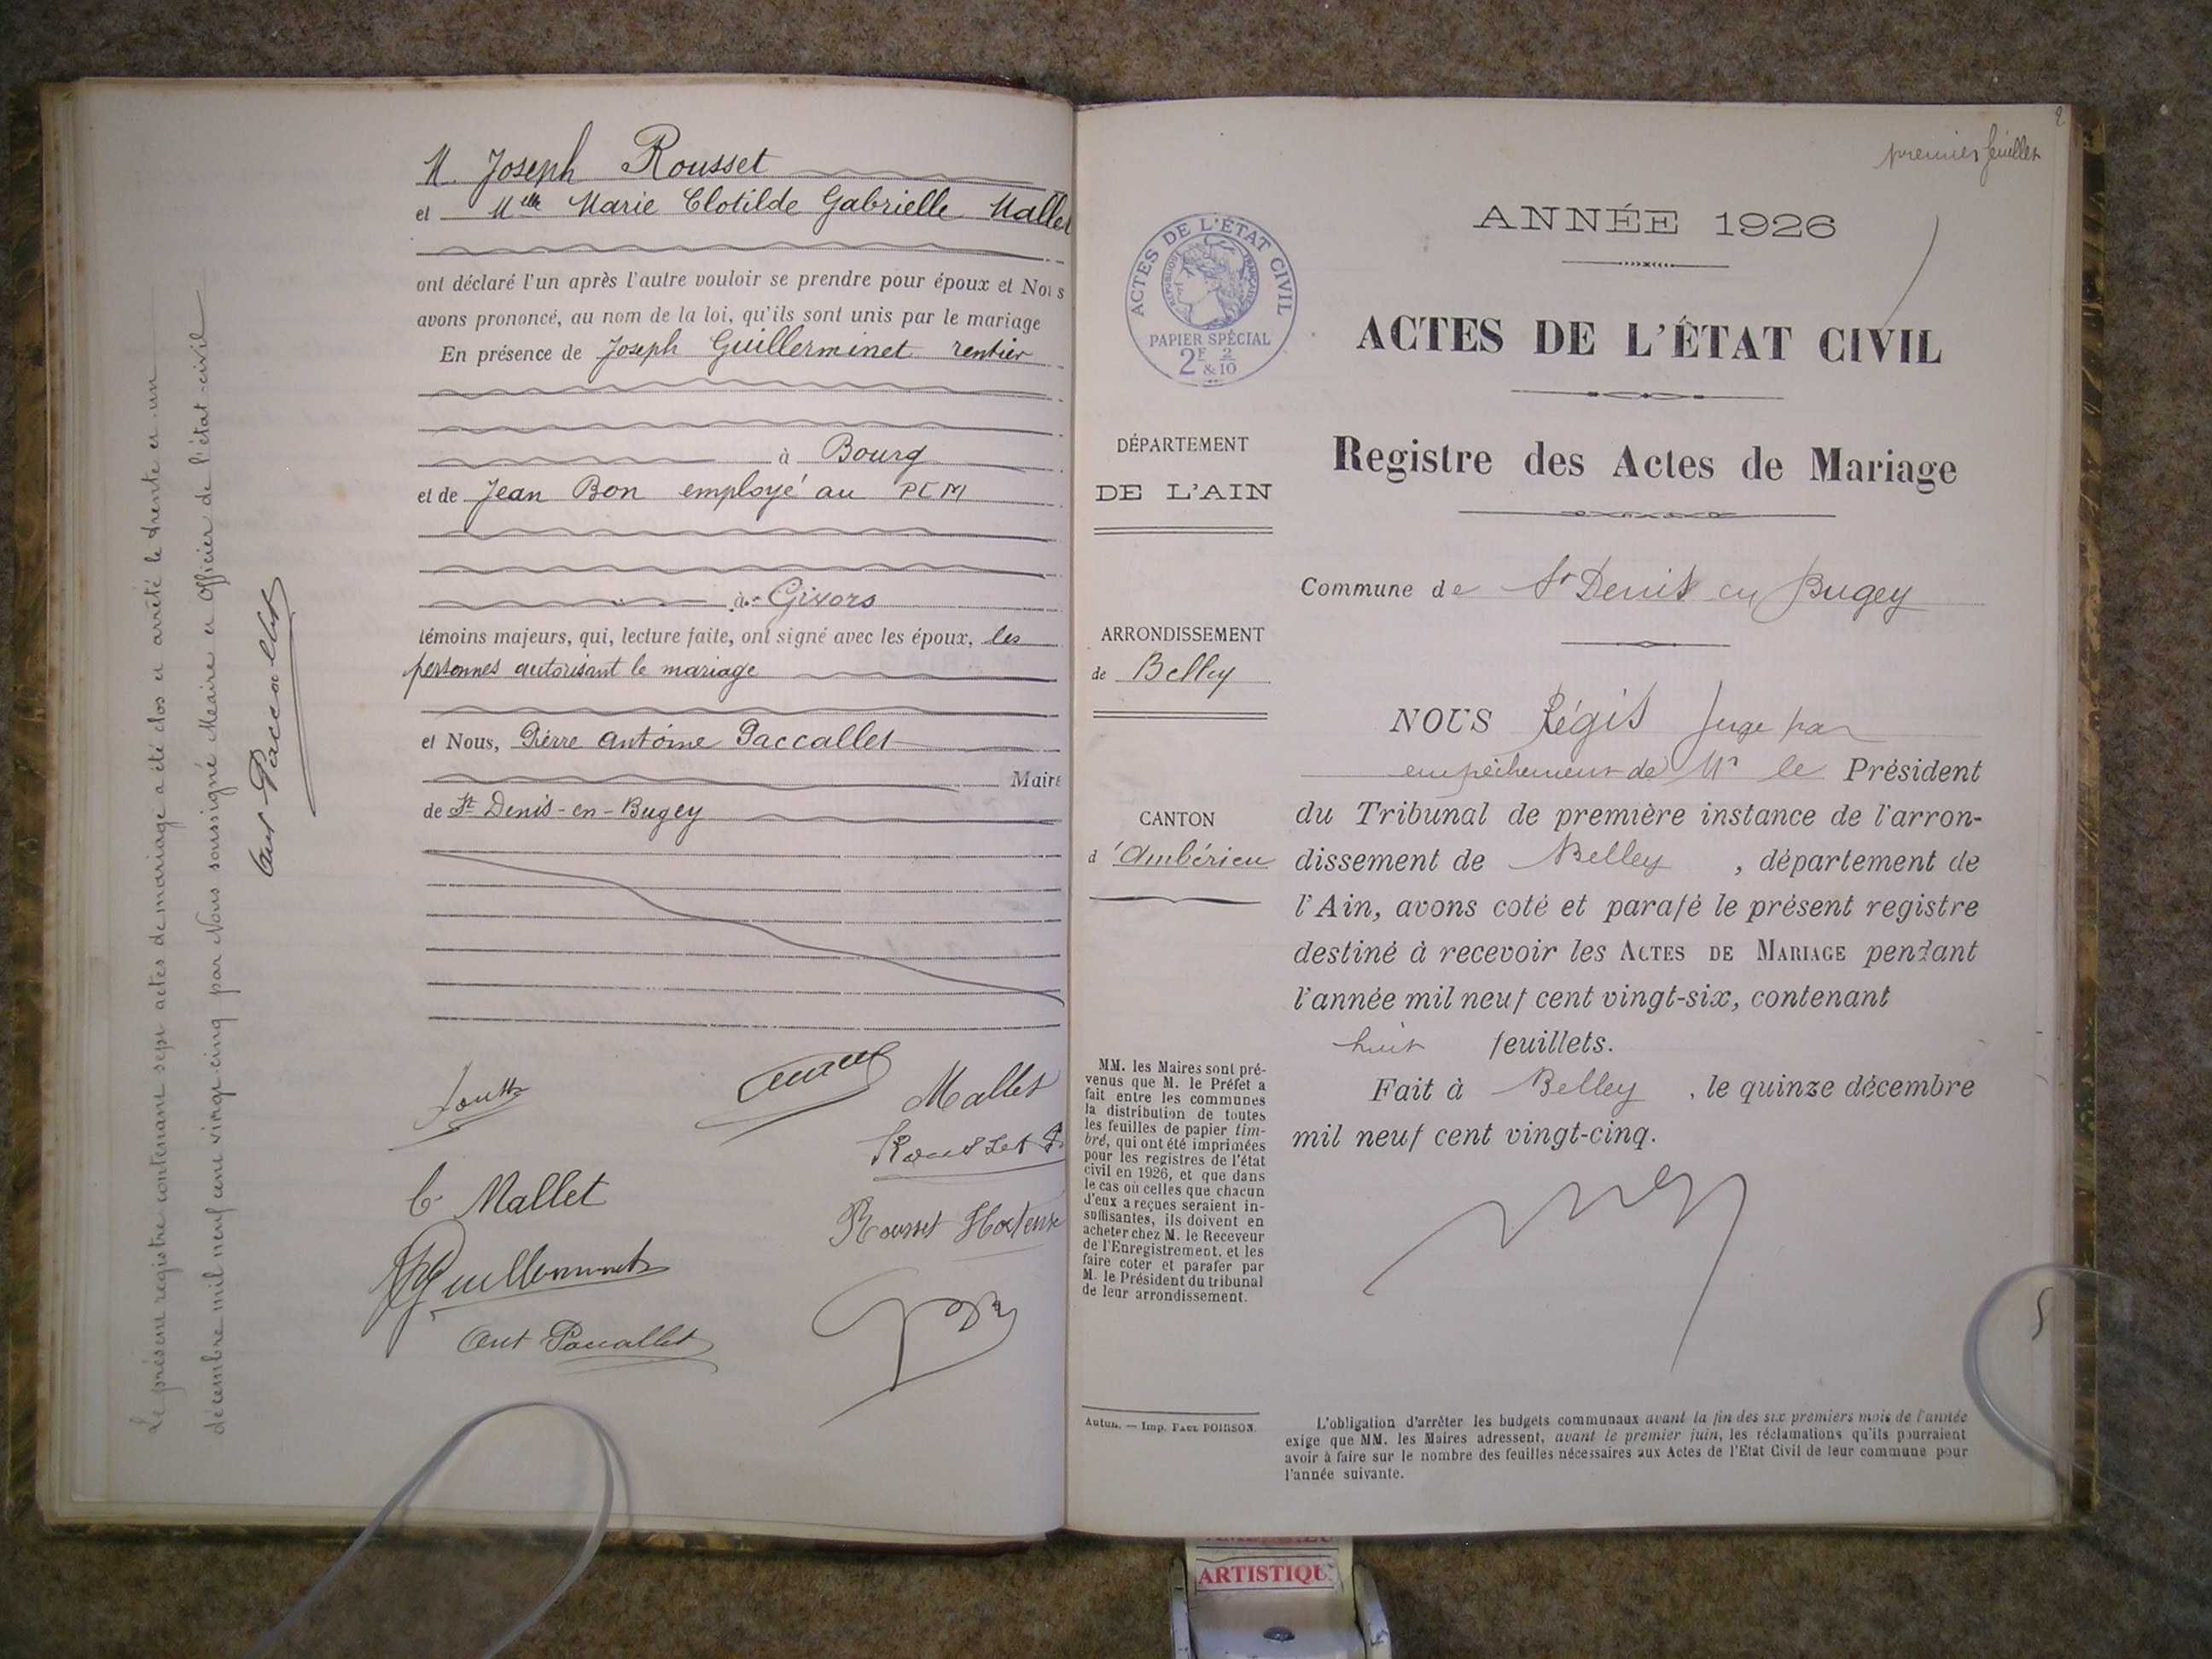 M. Joseph Rousset
et Mlle Marie Clotilde Gabrielle Mallet
ont déclaré l'un après l'autre vouloir se prendre pour époux et Nous
avons prononcé, au nom de la loi, qu'ils sont unis par le mariage
En présence de Joseph Guillerminet rentier
à Bourg
et de Jean Bon employé au PLM
à Givors
témoins majeurs, qui, lecture faite, ont signé avec les époux, les
personnes autorisant le mariage
et Nous, Pierre Antoine Paccallet
Maire
de St Denis-en-Bugey
Mallet
Rousset
C. Mallet
Rousset Hortense
Guillerminet
Ant Paccallet
Le présent registre contenant sept actes de mariage a été clos et arrêté le trente et un
décembre mil neuf cent vingt-cinq par Nous soussigné Maire et Officier de l'état-civil
Ant Paccallet
2
premier feuillet
ANNÉE 1926
ACTES DE L'ÉTAT CIVIL
RÉPUBLIQUE FRANÇAISE
PAPIER SPÉCIAL
2F 2
&10
ACTES DE L'ÉTAT CIVIL
Registre des Actes de Mariage
DÉPARTEMENT
DE L'AIN
ARRONDISSEMENT
de Belley
CANTON
d'Ambérieu
Commune de St Denis en Bugey
NOUS Régis Juge par
empêchement de Mr le Président
du Tribunal de première instance de l'arron-
dissement de Belley, département de
l'Ain, avons coté et parafé le présent registre
destiné à recevoir les ACTES DE MARIAGE pendant
l'année mil neuf cent vingt-six, contenant
huit feuillets.
Fait à Belley, le quinze décembre
mil neuf cent vingt-cinq.
MM. les Maires sont pré-
venus que M. le Préfet a
fait entre les communes
la distribution de toutes
les feuilles de papier tim-
bré, qui ont été imprimées
pour les registres de l'état
civil en 1926, et que dans
le cas où celles que chacun
d'eux a reçues seraient in-
suffisantes, ils doivent en
acheter chez M. le Receveur
de l'Enregistrement, et les
faire coter et parafer par
M. le Président du tribunal
de leur arrondissement.
Autun. — Imp. PAUL POIRSON.
L'obligation d'arrêter les budgets communaux avant la fin des six premiers mois de l'année
exige que MM. les Maires adressent, avant le premier juin, les réclamations qu'ils pourraient
avoir à faire sur le nombre des feuilles nécessaires aux Actes de l'Etat Civil de leur commune pour
l'année suivante.
ARTISTIQU